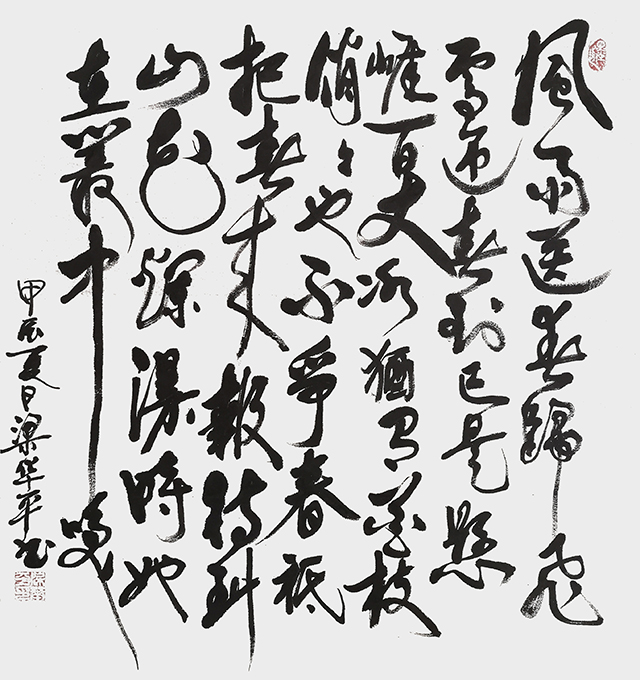 風雨送春歸飛
雪迎春到已是懸
崖百丈冰猶有花枝
俏々也不爭春祗
把春来報待到
山花爛漫時她
在叢中咲
甲辰夏日梁华平书